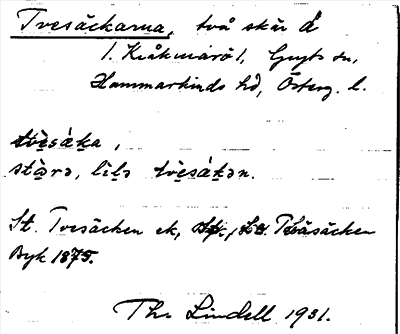 Tvesäckarna, två skär å
1. Kråkmarö 1, Gryts sn,
Hammarkinds hd, Österg. l.
tvèsáka,
stòrə, lìlə tvèsákən.
St. Tvesäcken ek, L:a. Tväsäcken
Byk 1875.
Thr Lindell 1931.